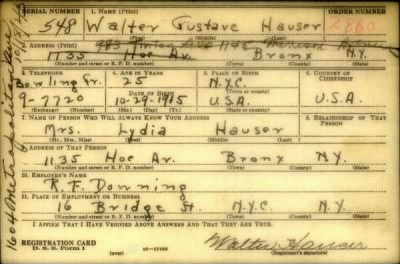 SERIAL NUMBER 1. NAME (Print) ORDER NUMBER
548 Walter Gustave Hauser 2860
2. ADDRESS (Print)
1135 Hoe Av. Bronx N.Y.
(Number and street or R. F. D. number) (Town) (County) (State)
3. TELEPHONE 4. AGE IN YEARS 5. PLACE OF BIRTH 6. COUNTRY OF CITIZENSHIP
Bowling Gr. 25 N.Y.C.
DATE OF BIRTH
9-7720 10-29-1915 U.S.A. U.S.A.
(Exchange) (Number) (Mo.) (Day) (Yr.) (State or country)
7. NAME OF PERSON WHO WILL ALWAYS KNOW YOUR ADDRESS 8. RELATIONSHIP OF THAT PERSON
Mrs. Lydia Hauser
(Mr., Mrs., Miss) (First) (Middle) (Last)
9. ADDRESS OF THAT PERSON
1135 Hoe Av. Bronx N.Y.
(Number and street or R. F. D. number) (Town) (County) (State)
10. EMPLOYER'S NAME
R. F. Downing
11. PLACE OF EMPLOYMENT OR BUSINESS
16 Bridge St. N.Y.C. N.Y.
(Number and street or R. F. D. number) (Town) (County) (State)
I AFFIRM THAT I HAVE VERIFIED ABOVE ANSWERS AND THAT THEY ARE TRUE.
REGISTRATION CARD
D. S. S. Form 1 (over) Walter Hauser
(Registrant's signature)
1604 Metropolitan Ave